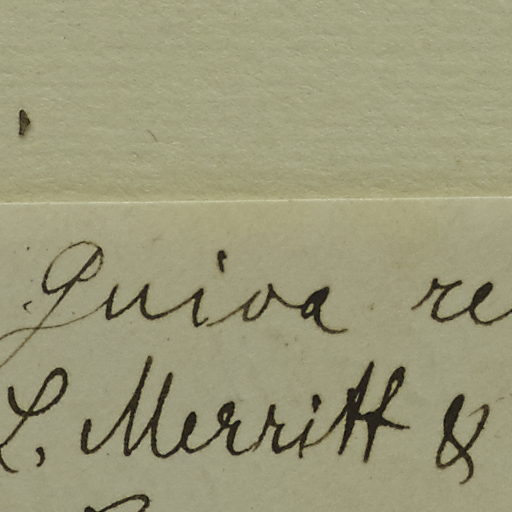 Guioa re
L. Merritt &